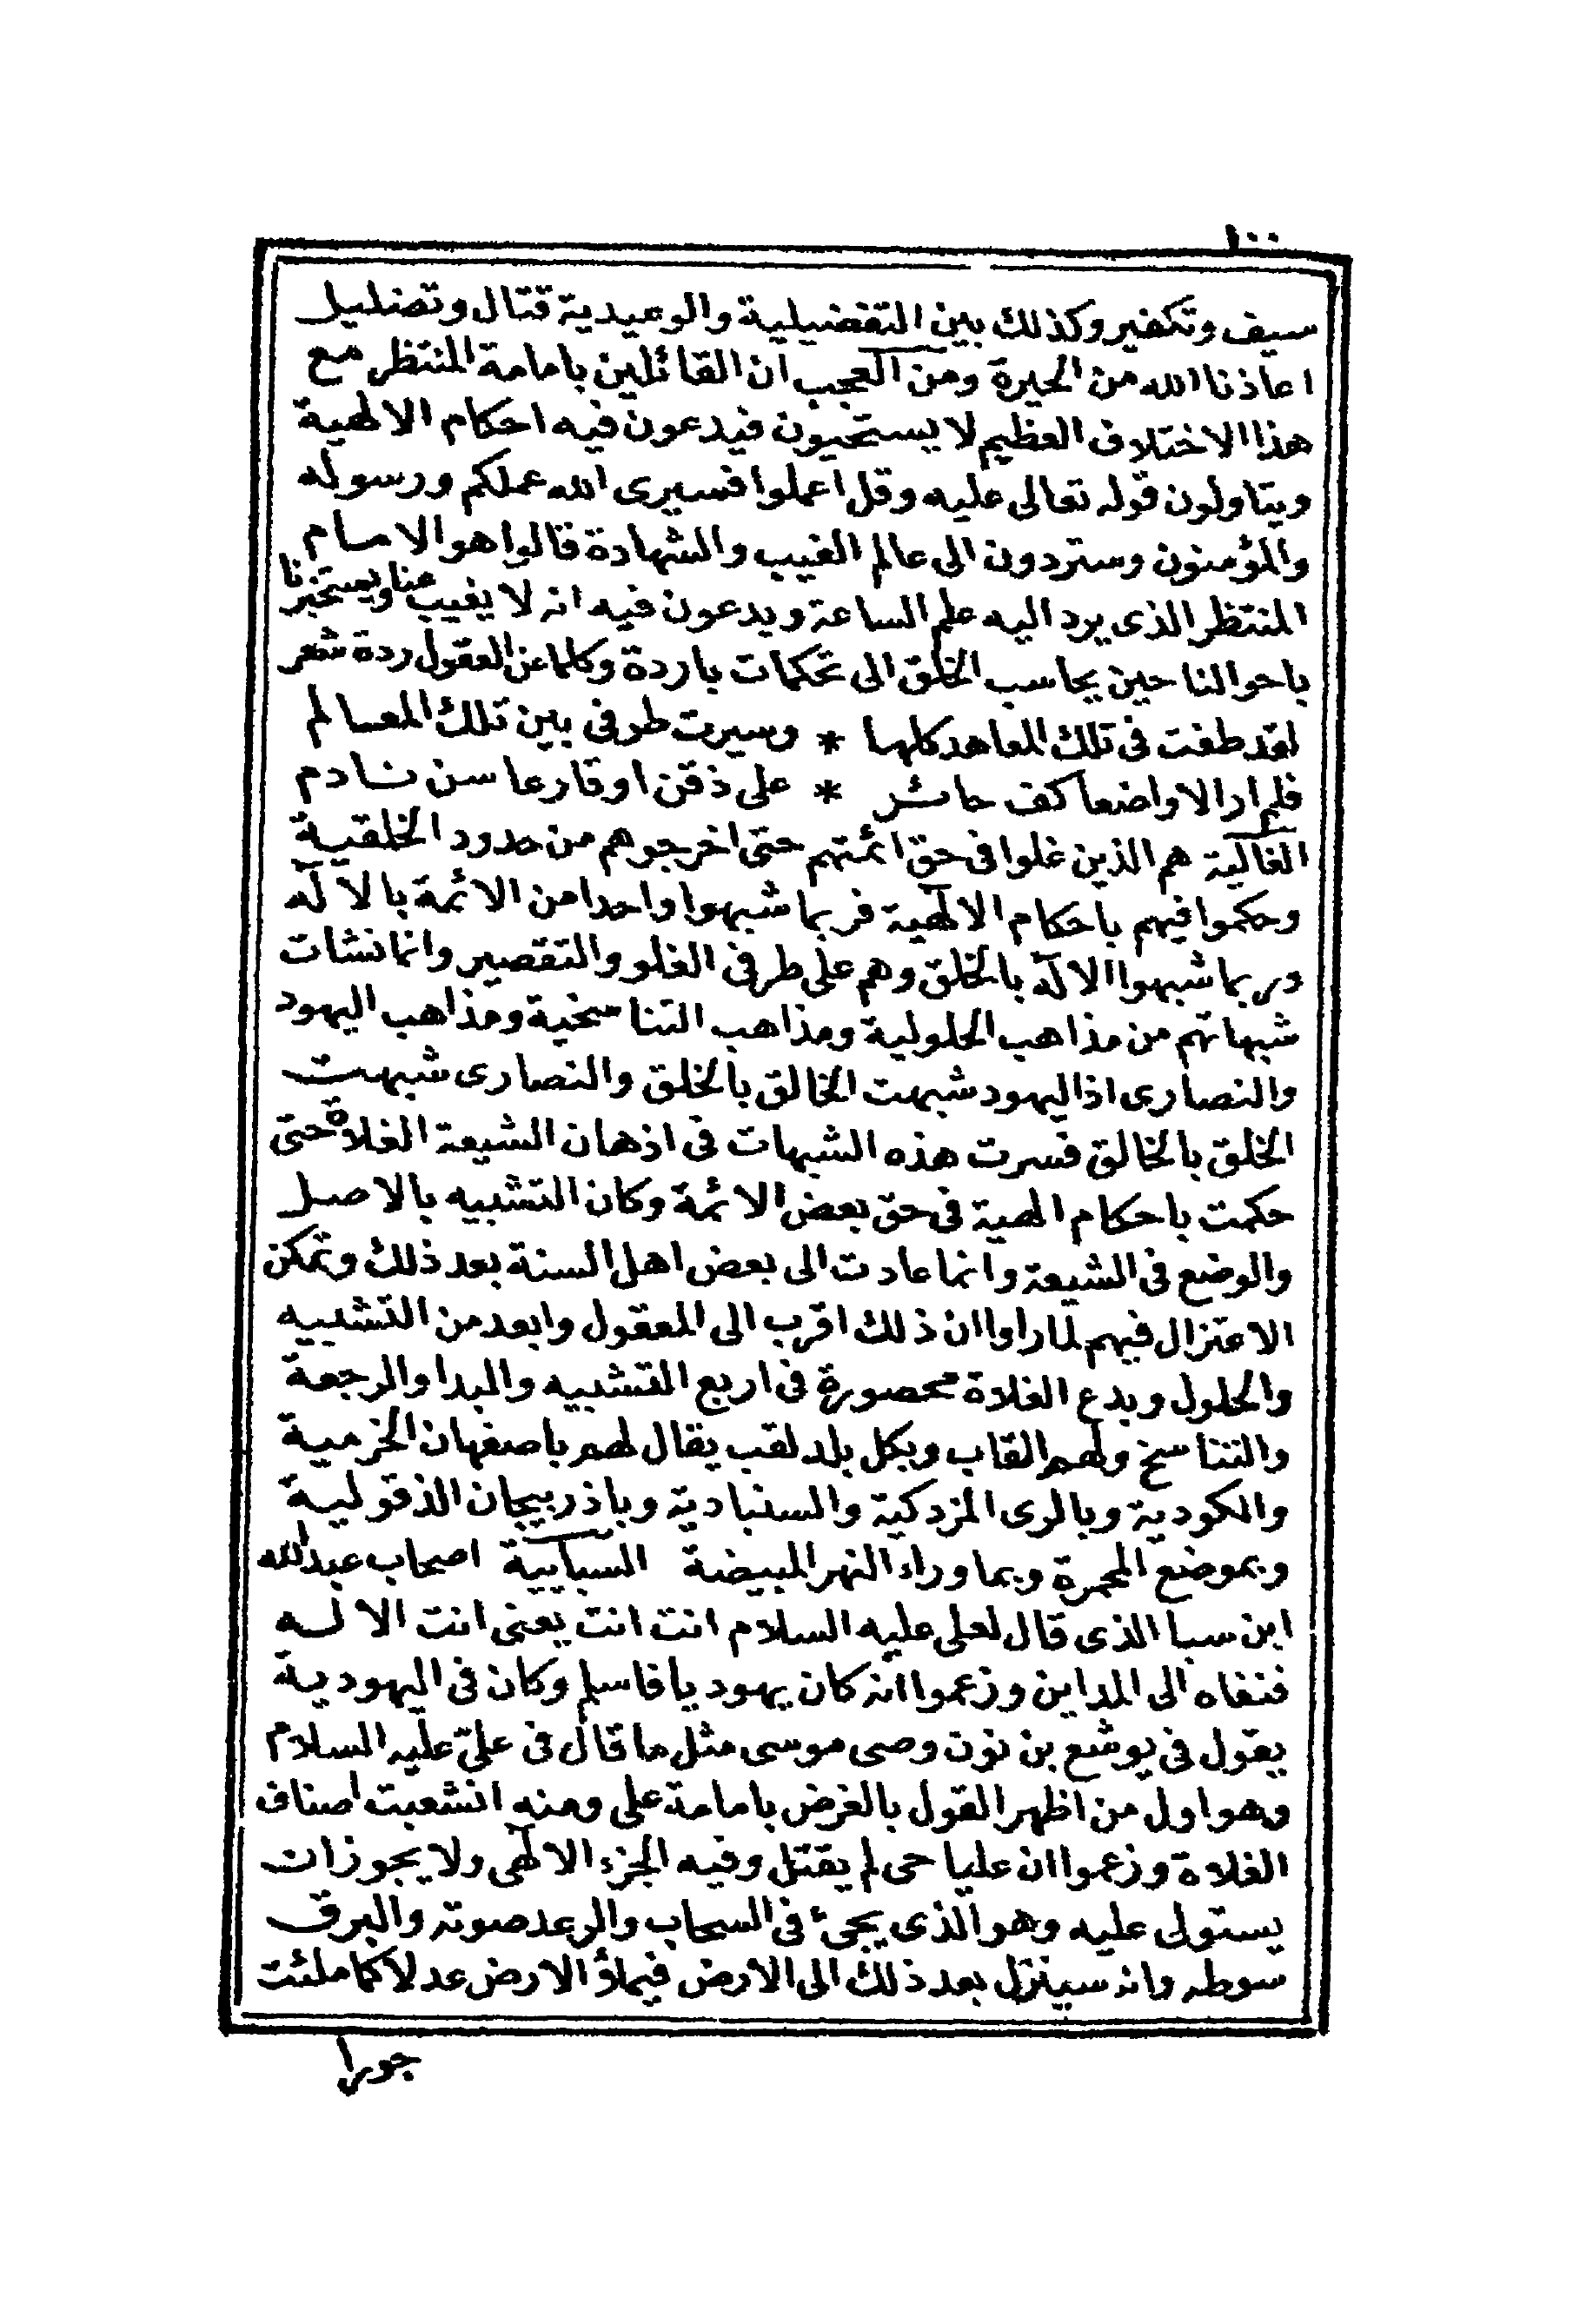 ١٠٠
سيف وتكفير وكذلك بين التفضيلية والوعيدية قتال وتضليل
اعاذنا الله من الحيرة ومن العجب ان القائلين بامامة المنتظر مع
هذا الاختلاف العظيم لا يستحيون فيدعون فيه احكام الالهية
ويتاولون قوله تعالى عليه وقل اعملوا فسيرى الله عملكم ورسوله
والمؤمنون وستردون الى عالم الغيب والشهادة قالوا هو الامام
المنتظر الذى يرد اليه علم الساعة ويدعون فيه انه لا يغيب عنا ويستخبرنا
باحوالنا حين يحاسب الخلق الى تحكمات باردة وكلما عن العقول ردة شعر
لقد طفت فى تلك المعاهد كلها * وسيرت طرفى بين تلك المعالم
فلم ار الا واضعا كف حائر * على ذقن او قارعا سن نادم
الغالية هم الذين غلوا فى حق ائمتهم حتى اخرجوهم من حدود الخلقية
وحكموا فيهم باحكام الالهية فربما شبهوا واحدا من الائمة بالاله
وربما شبهوا الاله بالخلق وهم على طرفى الغلو والتقصير وانما نشات
شبهاتهم من مذاهب الحلولية ومذاهب التناسخية ومذاهب اليهود
والنصارى اذ اليهود شبهت الخالق بالخلق والنصارى شبهت
الخلق بالخالق فسرت هذه الشبهات فى اذهان الشيعة الغلاة حتى
حكمت باحكام الهية فى حق بعض الائمة وكان التشبيه بالاصل
والوضع فى الشيعة وانما عادت الى بعض اهل السنة بعد ذلك وتمكن
الاعتزال فيهم لما راوا ان ذلك اقرب الى المعقول وابعد من التشبيه
والحلول وبدع الغلاة محصورة فى اربع التشبيه والبدا والرجعة
والتناسخ ولهم القاب وبكل بلد لقب يقال لهم باصفهان الخزمية
والكودية وبالرى المزدكية والسنبادية وباذربيجان الذقولية
وبموضع المحمرة وبما وراء النهر المبيضة السبايية اصحاب عبد الله
ابن سبا الذى قال لعلى عليه السلام انت انت يعنى انت الاله
فنفاه الى المداين وزعموا انه كان يهوديا فاسلم وكان فى اليهودية
يقول فى يوشع بن نون وصى موسى مثل ما قال فى على عليه السلام
وهو اول من اظهر القول بالغرض بامامة على ومنه انشعبت اصناف
الغلاة وزعموا ان عليا حى لم يقتل وفيه الجزء الالهى ولا يجوز ان
يستولى عليه وهو الذى يجئ فى السحاب والرعد صوته والبرق
سوطه وانه سينزل بعد ذلك الى الارض فيملؤ الارض عدلا كما ملئت
جورا